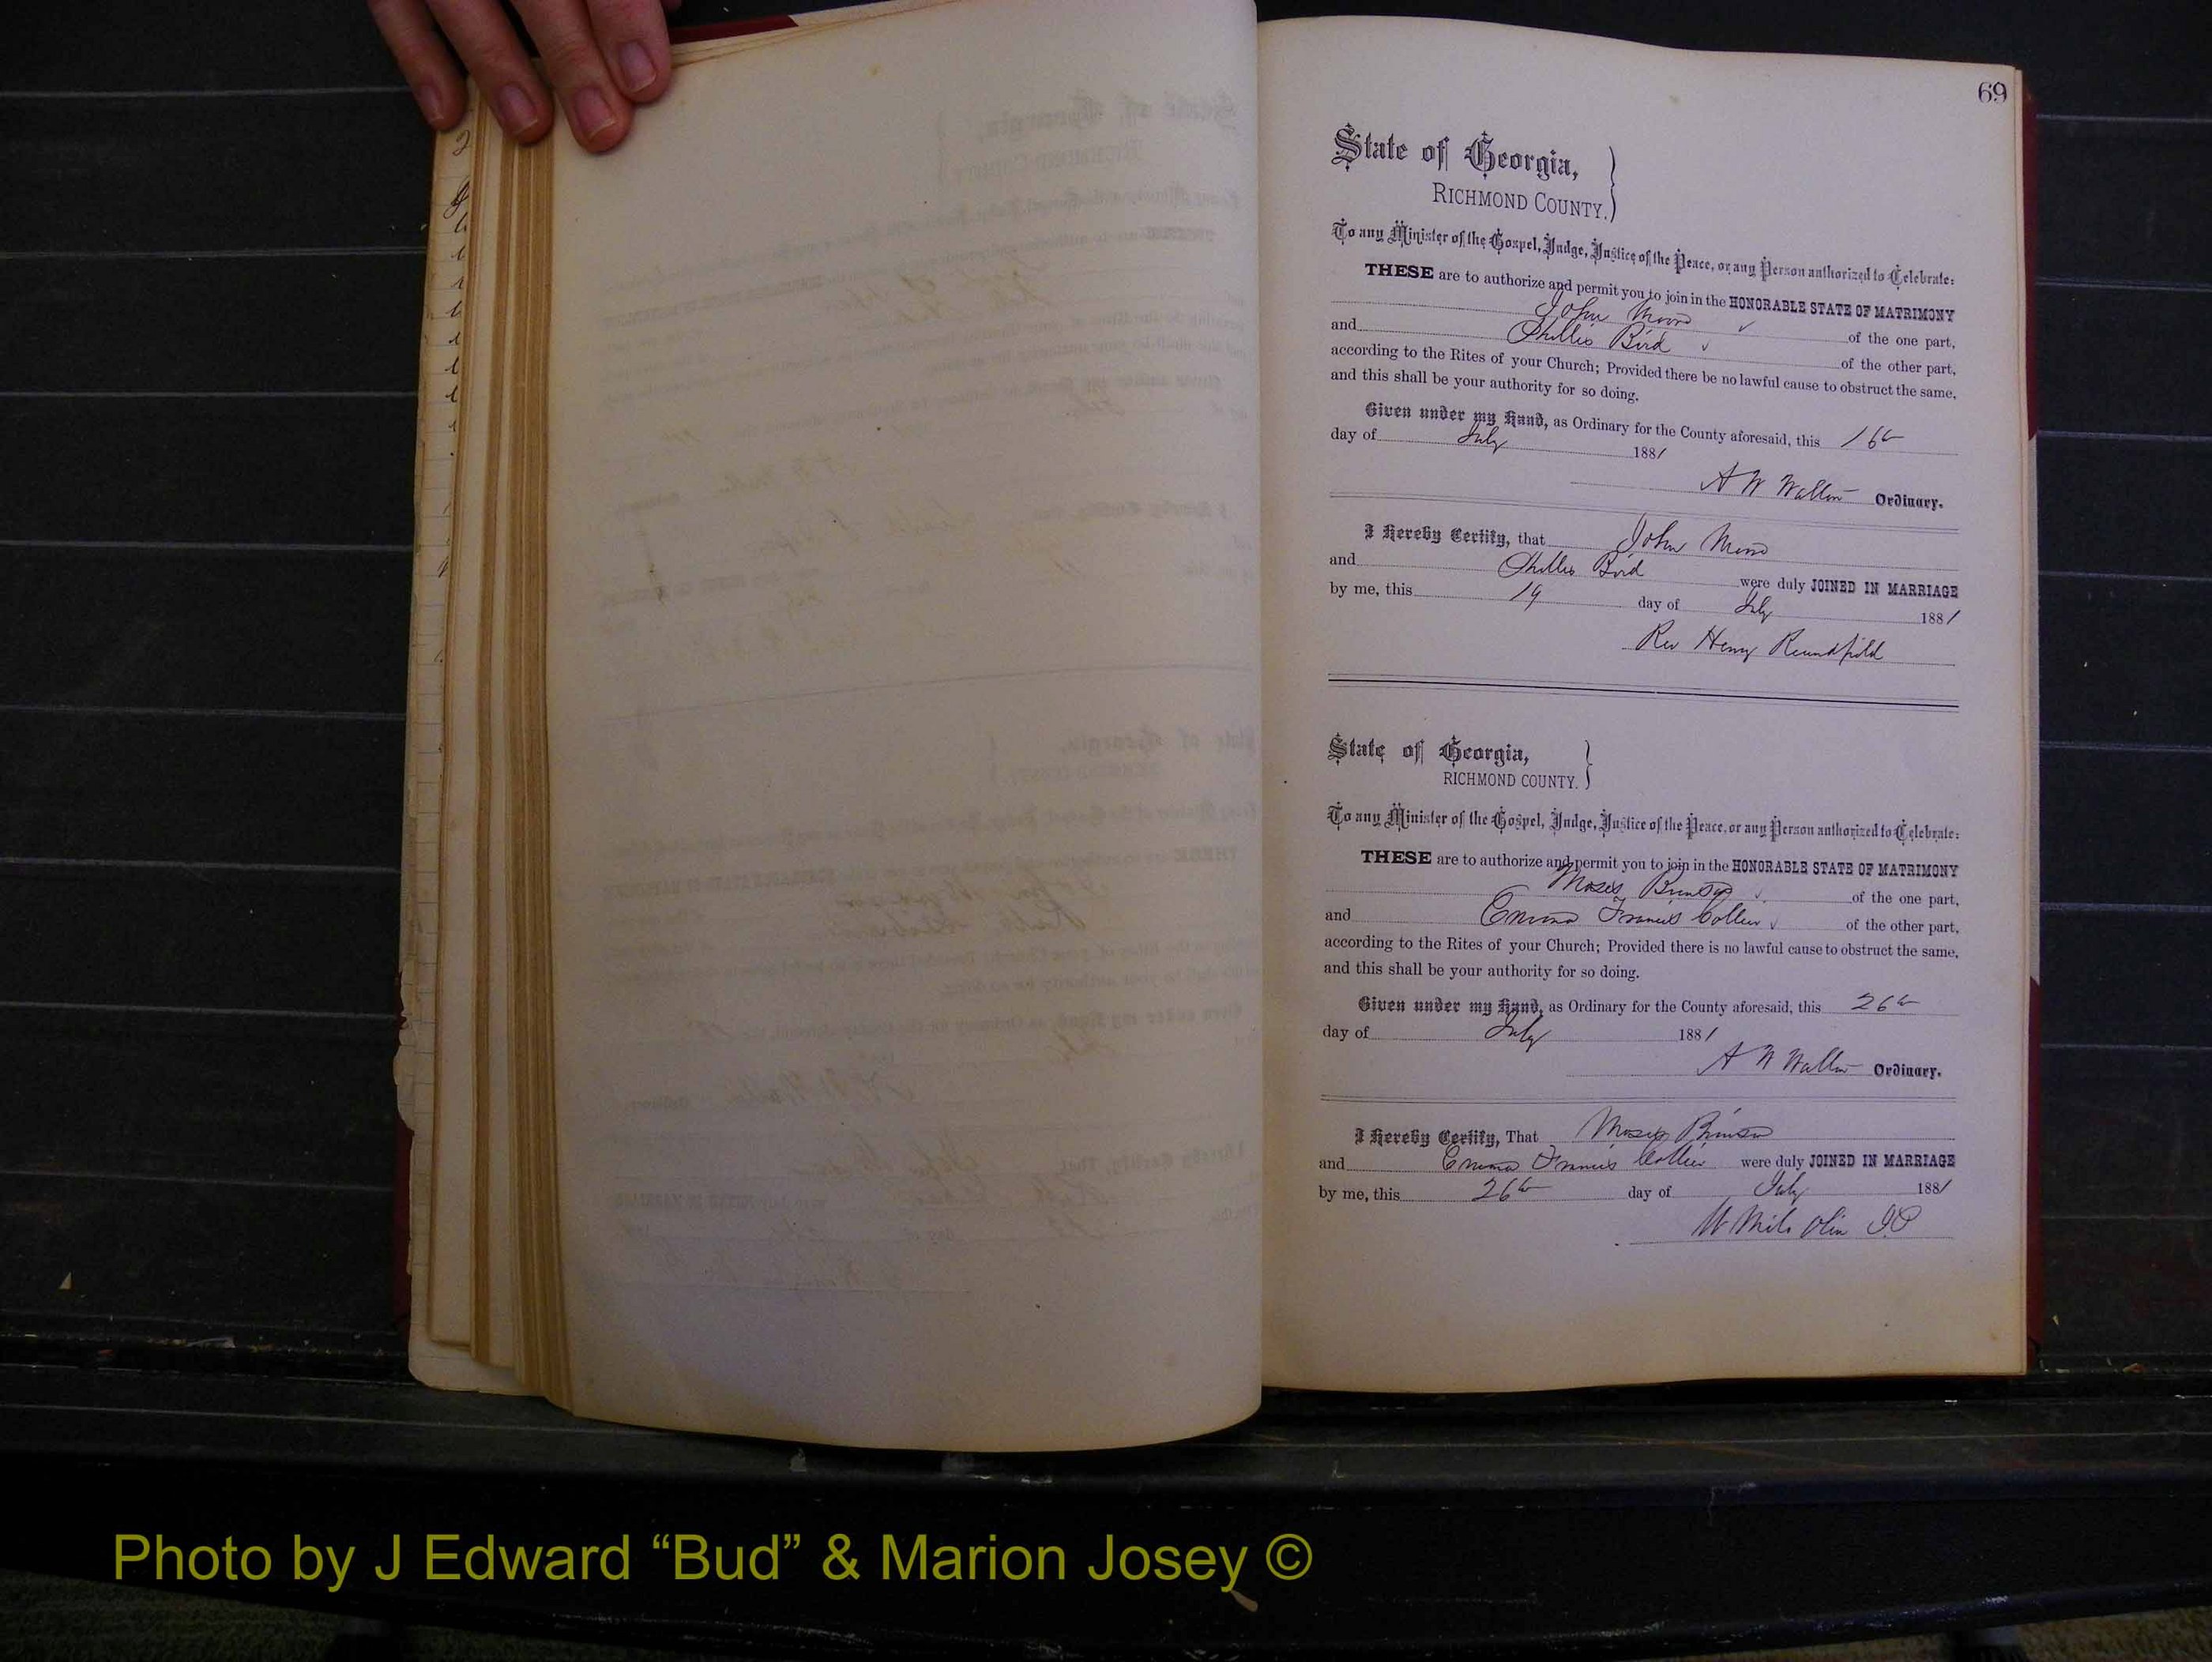 69
State of Georgia,
RICHMOND COUNTY.
To any Minister of the Gospel, Judge, Justice of the Peace, or any Person authorized to Celebrate:
THESE are to authorize and permit you to join in the HONORABLE STATE OF MATRIMONY
John Moore of the one part,
and Phillis Bird of the other part,
according to the Rites of your Church; Provided there be no lawful cause to obstruct the same,
and this shall be your authority for so doing.
Given under my Hand, as Ordinary for the County aforesaid, this 16th
day of July 1881
A W Walton Ordinary.
I Hereby Certify, that John Moore
and Phillis Bird were duly JOINED IN MARRIAGE
by me, this 19 day of July 1881
Rev Henry Roundfield
State of Georgia,
RICHMOND COUNTY.
To any Minister of the Gospel, Judge, Justice of the Peace, or any Person authorized to Celebrate:
THESE are to authorize and permit you to join in the HONORABLE STATE OF MATRIMONY
Moses Brinson of the one part,
and Emma Francis Collier of the other part,
according to the Rites of your Church; Provided there is no lawful cause to obstruct the same,
and this shall be your authority for so doing.
Given under my Hand, as Ordinary for the County aforesaid, this 26th
day of July 1881
A W Walton Ordinary.
I Hereby Certify, That Moses Brinson
and Emma Francis Collier were duly JOINED IN MARRIAGE
by me, this 26th day of July 1881
W Milo Olin J.P
Photo by J Edward “Bud” & Marion Josey ©